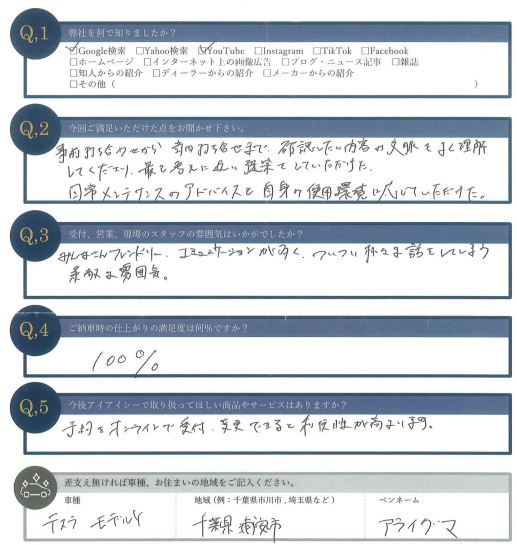 Q,1 弊社を何で知りましたか？
☑Google検索 □Yahoo検索 ☑YouTube □Instagram □TikTok □Facebook
□ホームページ □インターネット上の画像広告 □ブログ・ニュース記事 □雑誌
□知人からの紹介 □ディーラーからの紹介 □メーカーからの紹介
□その他（ ）
Q,2 今回ご満足いただけた点をお聞かせ下さい。
事前打ち合わせから 前回打ち合せまで、確認したい内容の文脈をよく理解
してくださり、最も考えに近い提案をしていただけた。
日常メンテナンスのアドバイスを自身の使用環境に応じていただけた。
Q,3 受付、営業、現場のスタッフの雰囲気はいかがでしたか？
みなさんフレンドリー、コミュニケーションが多く、ついつい様々な話をしてしまう
素敵な雰囲気。
Q,4 ご納車時の仕上がりの満足度は何%ですか？
100%
Q,5 今後アイアイシーで取り扱ってほしい商品やサービスはありますか？
予約をオンラインで受付、変更できると利便性が高まります。
差支え無ければ車種、お住まいの地域をご記入ください。
車種 地域（例：千葉県市川市，埼玉県など） ペンネーム
テスラ モデルY 千葉県浦安市 アライグマ